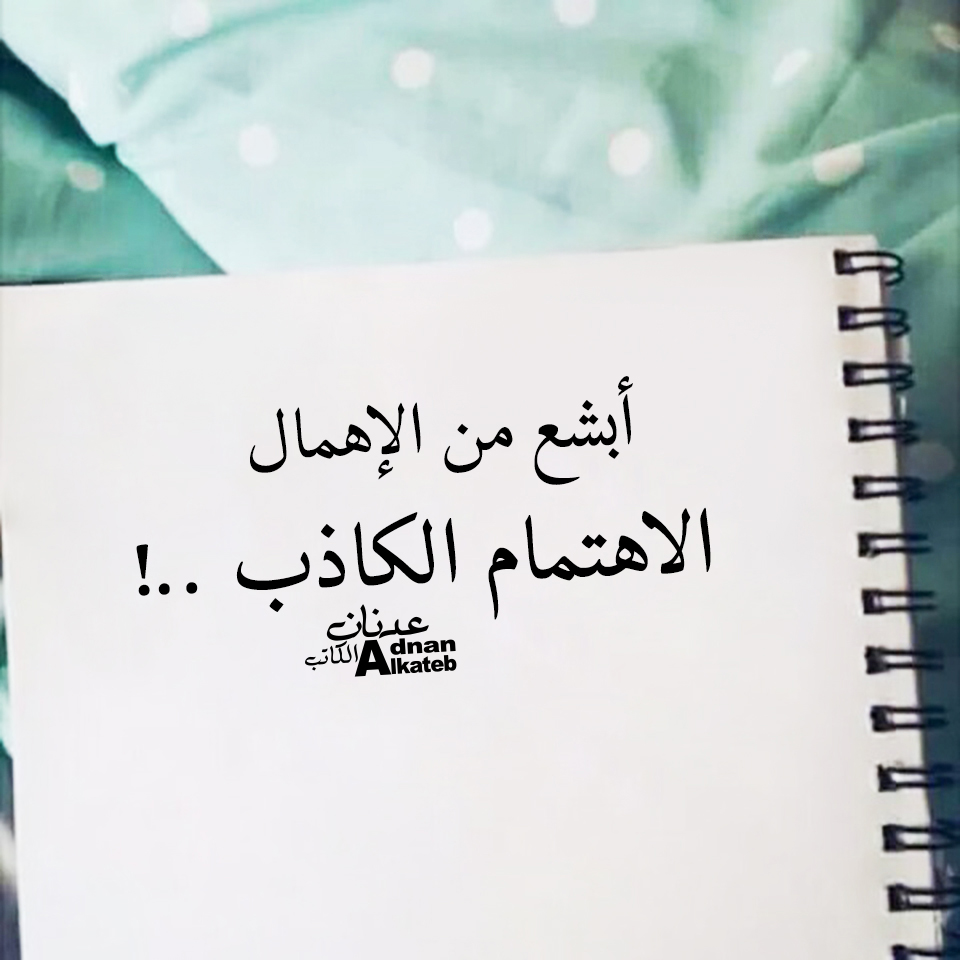 أبشع من الإهمال
الاهتمام الكاذب ..!
عدنان
الكاتب
Adnan
Alkateb